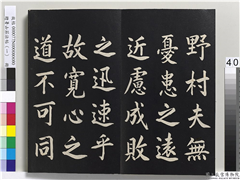 野村夫無
憂患之遠
近慮成敗
之迅速乎
故寬心之
道不可同
40